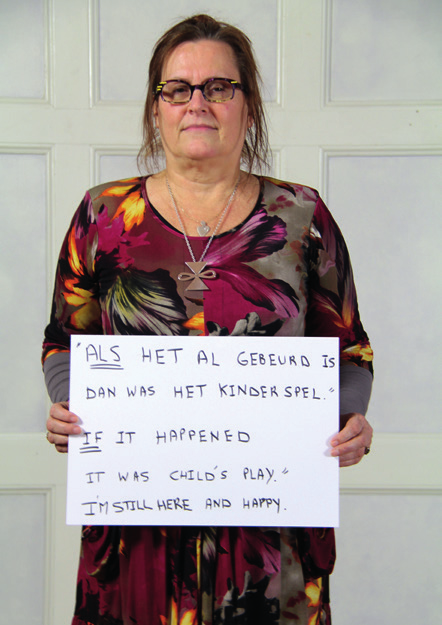 "ALS HET AL GEBEURD IS
DAN WAS HET KINDERSPEL."
IF IT HAPPENED
IT WAS CHILD'S PLAY."
I'M STILL HERE AND HAPPY.